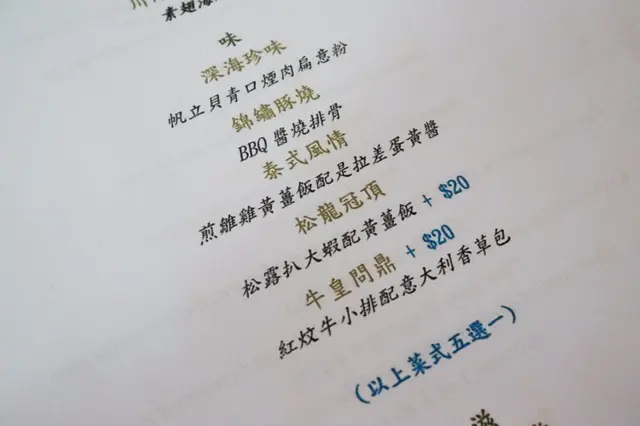 素翅海
味
深海珍味
帆立貝青口煙肉扁意粉
錦繡豚燒
BBQ 醬燒排骨
泰式風情
煎雛雞黃薑飯配是拉差蛋黃醬
松龍冠頂 + $20
松露扒大蝦配黃薑飯
牛皇問鼎 + $20
紅炆牛小排配意大利香草包
(以上菜式五選一)
滋